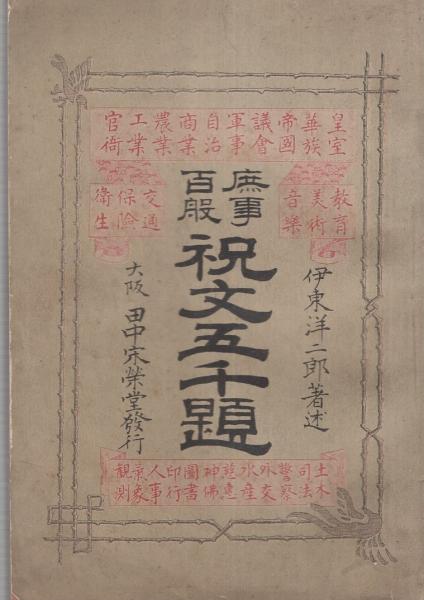 皇室 華族 帝國 議會 軍事 自治 商業 農業 工業 官衙
教育 美術 音樂
交通 保險 衛生
庶事
百般
祝文五千題
伊東洋二郎著述
大阪 田中宋榮堂發行
土木 司法 警察 外交 水産 慈惠 神佛 圖書 印行 人事 景象 觀測